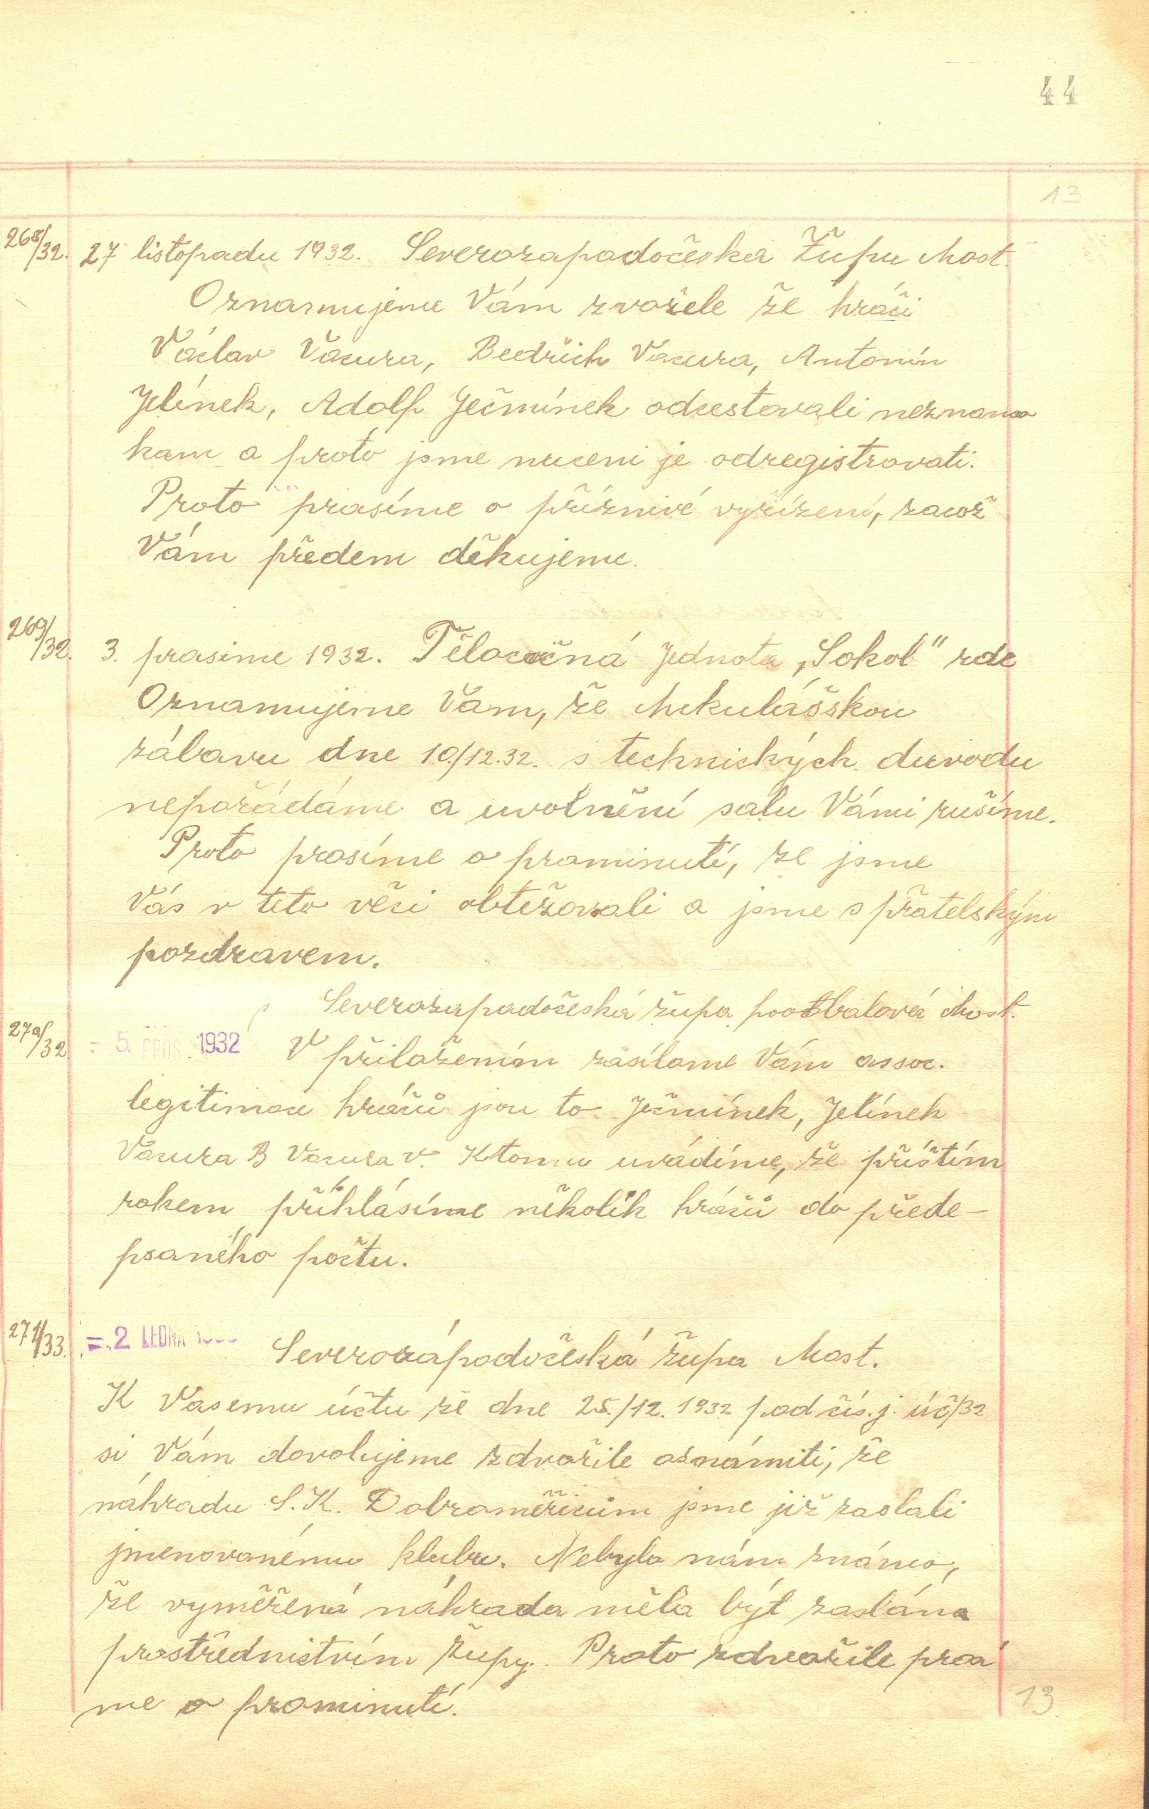 44
13
268/32. 27 listopadu 1932. Severozapadočeska Župu Most.
Oznamujeme Vám zvořele že hráči
Václav Vacura, Bedřich Vacura, Antonín
Jelínek, Adolf Ječmínek odcestovali neznamo
kam a proto jsme nuceni je odregistrovati.
Proto prosíme o příznivé vyřízení, začož
Vám předem děkujeme.
269/32. 3. prasince 1932. Tělocvičná Jednota „Sokol" zde
Oznamujeme Vám, že Mikulášskou
zábavu dne 10./12.32. s technických duvodu
nepořádáme a uvolnění salu Vámi rušíme.
Proto prosíme o prominutí, že jsme
Vás v teto věci obtěžovali a jsme s přatelským
pozdravem.
Severozapadočeská župa footbalová Most.
270/32 = 5. PROS. 1932 V přiložením zasílame Vám assoc.
legitimace hráčů jsou to Ječmínek, Jelínek
Vacura B Vacura V. K tomu uvádíme, že příštím
rokem příhlásíme několik hráčů do přede-
psaného počtu.
271/33. = 2 LEDNA Severozápadočeská župa Most.
K Vasemu účtu ze dne 25./12. 1932 pod čís. j. úč/32
si Vám dovolujeme zdvořile oznámiti, že
náhradu S.K. Dobroměřicům jsme již zaslali
jmenovanému klubu. Nebylo nám známo,
že vyměřená náhrada měla být zaslána
prostřednistvím župy. Proto zdvořile prosí
me o prominutí.
13